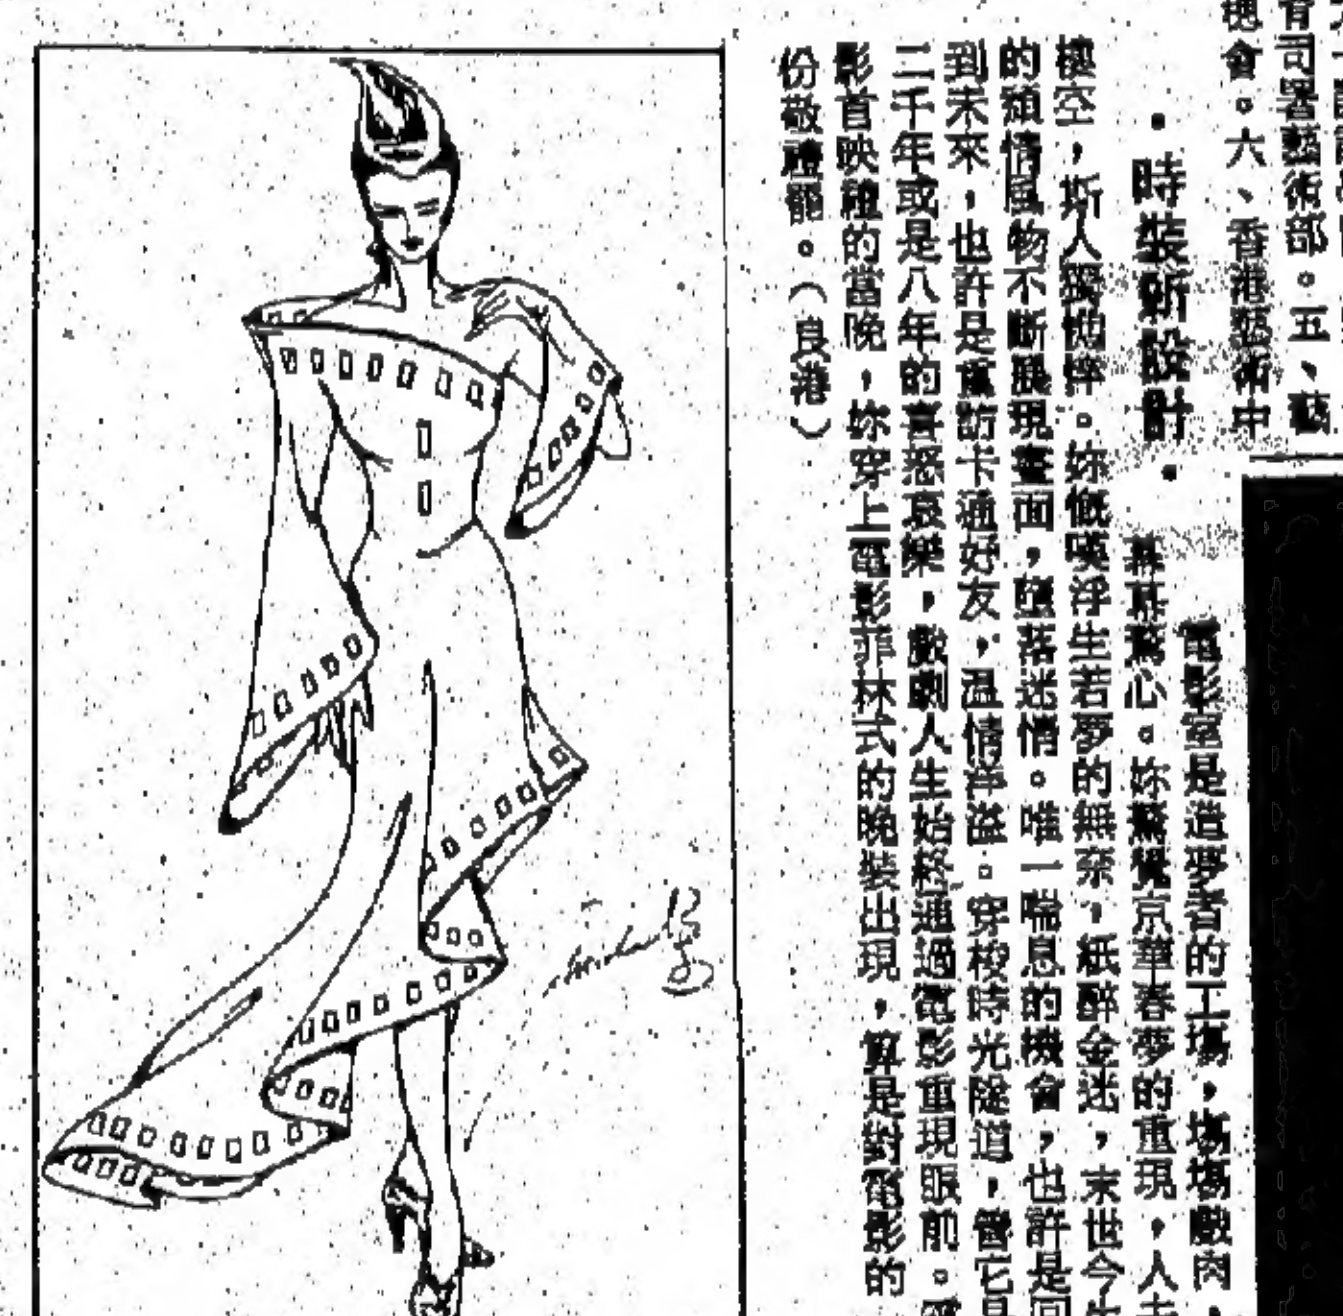 育司署藝術部。五、藝
會。六、香港藝術中
·時裝新設計·
電影室是造夢者的工場，場場戲肉
驚心。妳驚覺京華春夢的重現，人去
樓空，斯人獨憔悴。妳慨嘆浮生若夢的無奈，紙醉金迷，末世今生
的頹情風物不斷展現畫面，墮落迷情。唯一喘息的機會，也許是回
到未來，也許是重訪卡通好友，溫情洋溢。穿梭時光隧道，管它是
二千年或是八年的喜怒哀樂，戲劇人生始終通過電影重現眼前。
影首映禮的當晚，妳穿上電影菲林式的晚裝出現，算是對電影的
份敬禮罷。（良港）